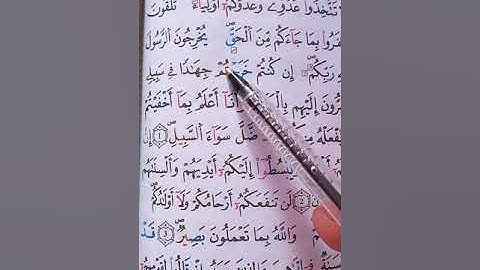 تَتَّخِذُوا۟ عَدُوِّى وَعَدُوَّكُمْ أَوْلِيَآءَ تُلْقُونَ
فَرُوا۟ بِمَا جَآءَكُم مِّنَ ٱلْحَقِّ يُخْرِجُونَ ٱلرَّسُولَ
رَبِّكُمْ إِن كُنتُمْ جِهَٰدًا فِى سَبِيلِ
رُّونَ إِلَيْهِم أَعْلَمُ بِمَآ أَخْفَيْتُمْ
يَفْعَلْهُ ضَلَّ سَوَآءَ ٱلسَّبِيلِ ١ إِن
يَبْسُطُوٓا۟ إِلَيْكُمْ أَيْدِيَهُمْ وَأَلْسِنَتَهُم
٢ لَن تَنفَعَكُمْ أَرْحَامُكُمْ وَلَآ أَوْلَٰدُكُمْ
وَٱللَّهُ بِمَا تَعْمَلُونَ بَصِيرٌ ٣ قَدْ